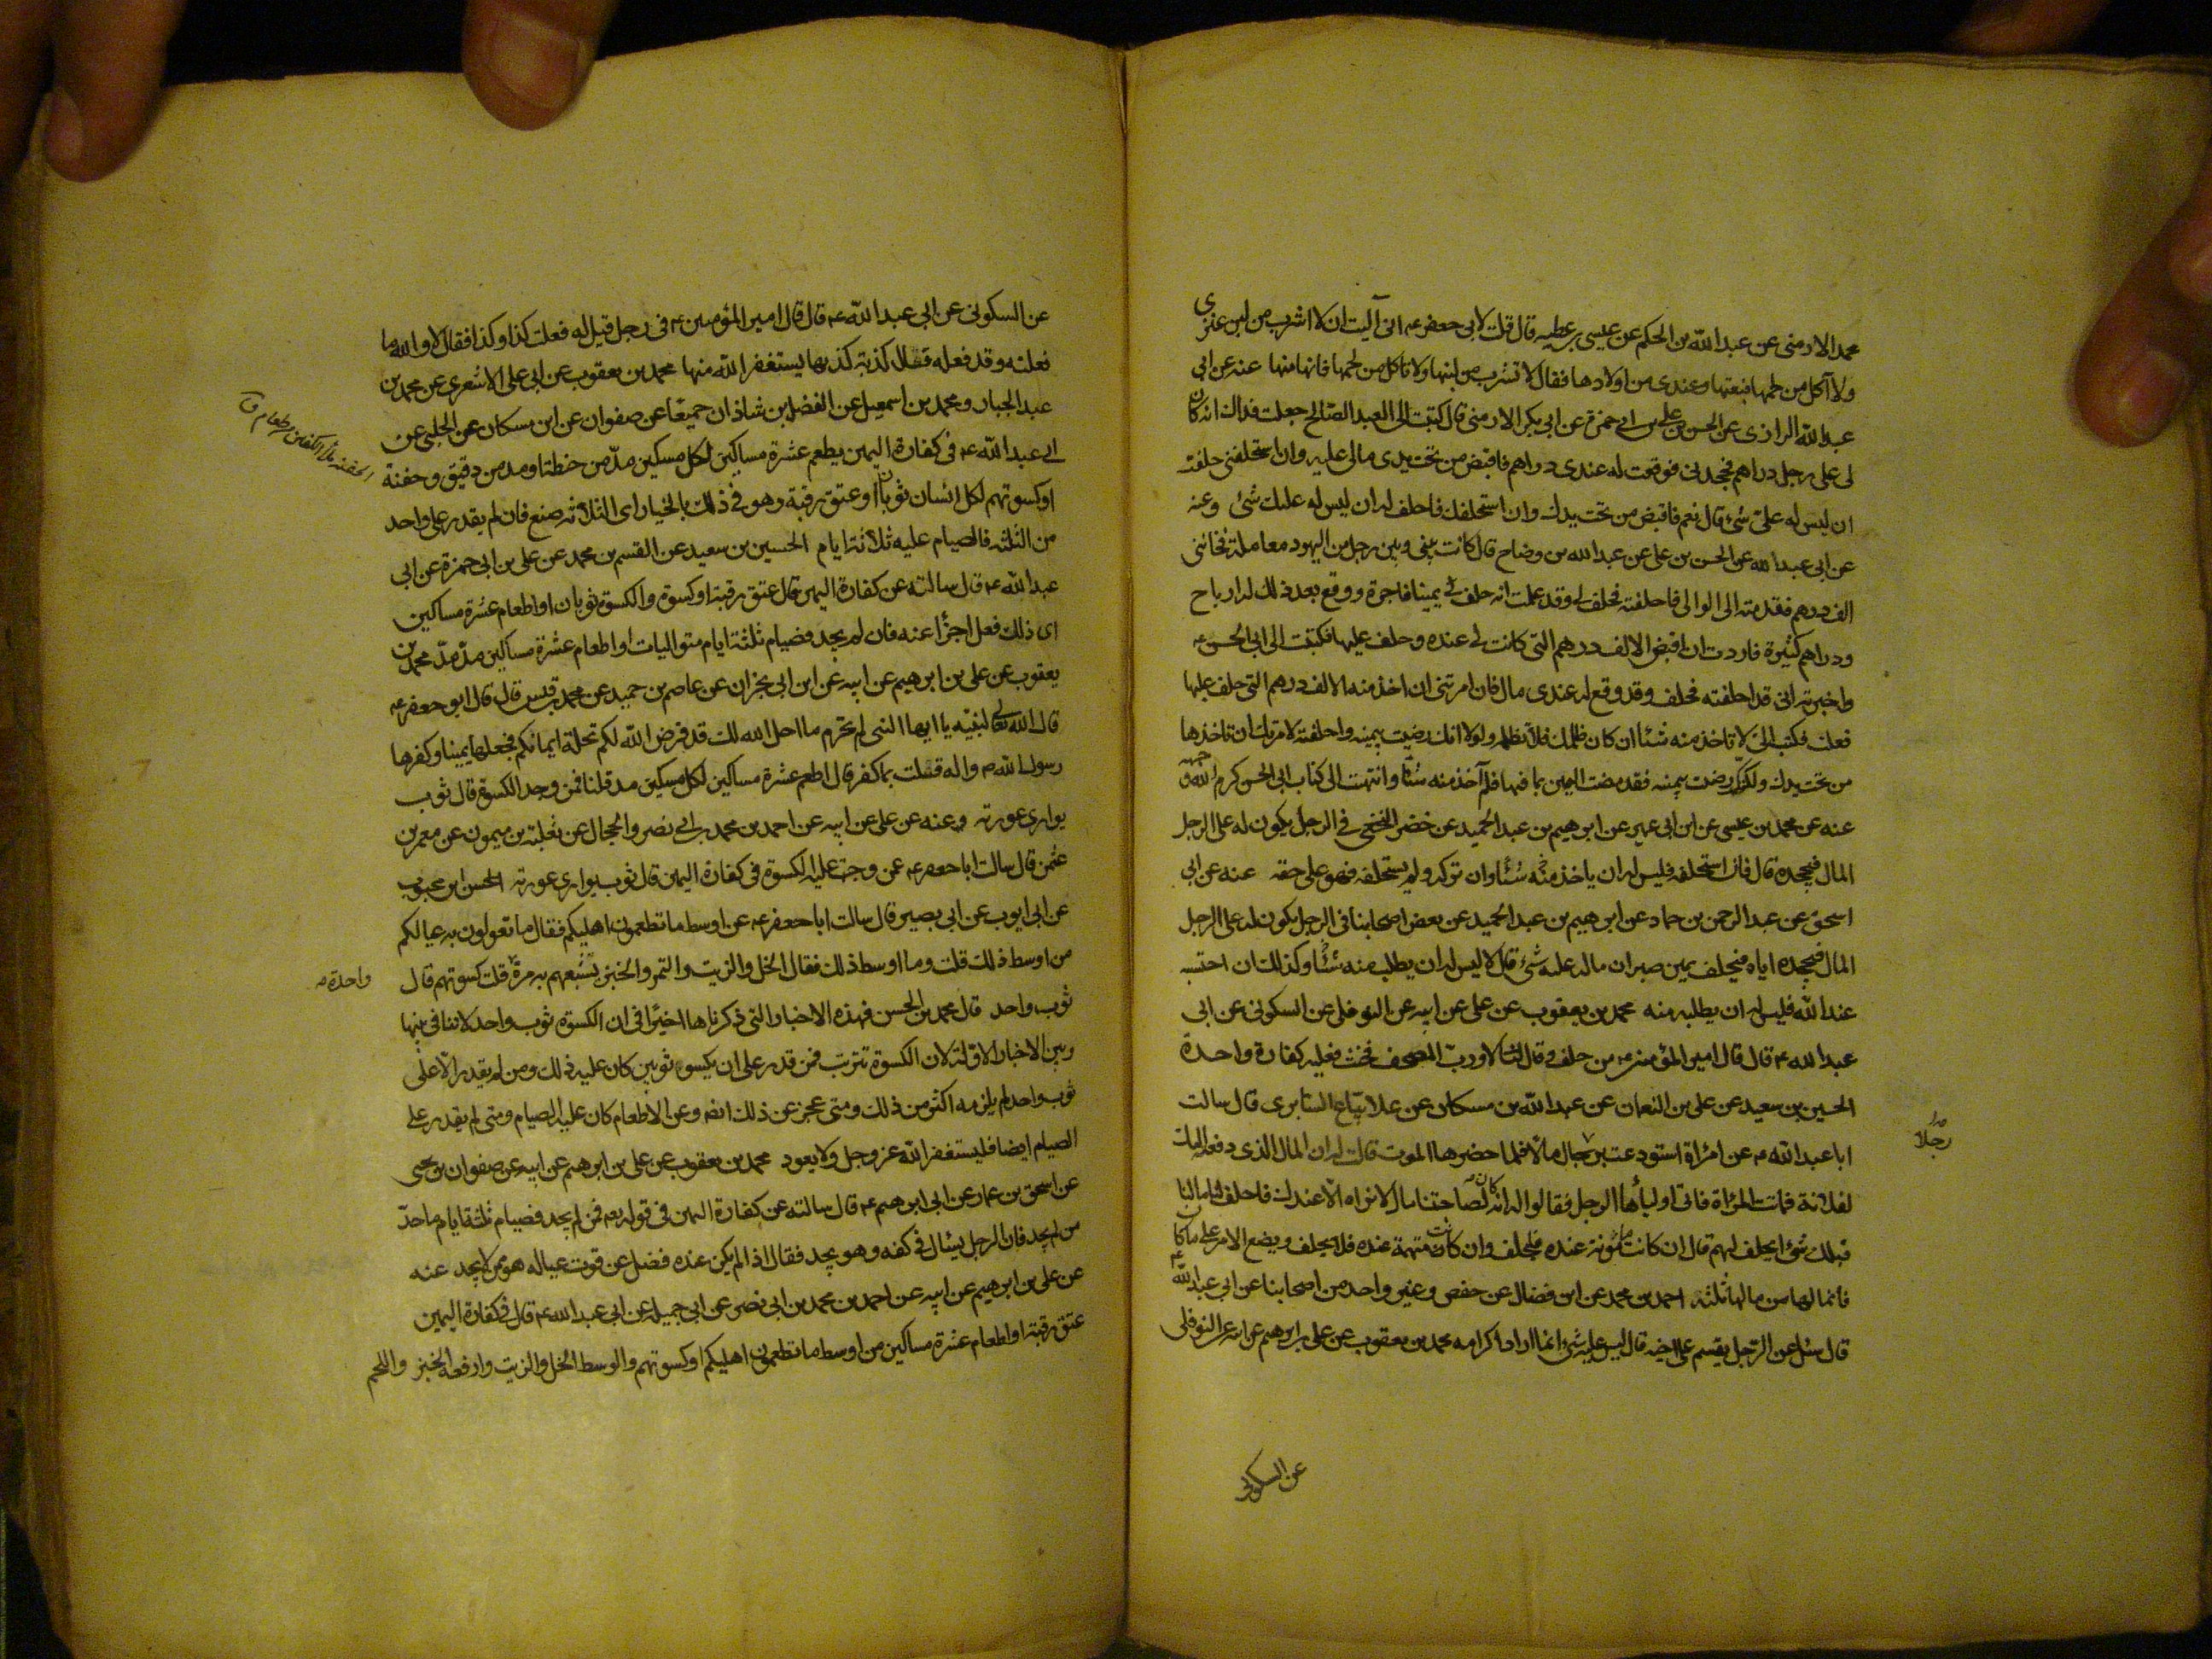 محمد الارمنى عن عبد الله بن الحكم عن عيسى بن عطيه قال قلت لابى جعفر ع انى آليت ان لا اشرب من لبن عنزى
ولا آكل من لحمها فبعتها وعندى من اولادها فقال لا تشرب من لبنها ولا تاكل من لحمها فانها منها عنه عن ابى
عبد الله الرازى عن الحسن بن على بن ابى حمزة عن ابى بكر الارمنى قال كتبت الى العبد الصالح جعلت فداك انه كان
لى على رجل دراهم فجحدنى فوقعت له عندى دراهم فاقبض من تحت يدى مالى عليه وان استحلفنى حلفت
ان ليس له على شئ قال نعم فاقبض من تحت يدك وان استحلفك فاحلف له ان ليس له عليك شئ وعنه
عن ابى عبد الله عن الحسن بن على عن عبد الله بن وضاح قال كانت بينى وبين رجل من اليهود معاملة فخاننى
الف درهم فقدمته الى الوالى فاحلفته فحلف لى وقد علمت انه حلف لى يمينا فاجرة ووقع بعد ذلك له ارباح
ودراهم كثيرة فاردت ان اقبض الالف درهم التى كانت لى عنده وحلف عليها فكتبت الى ابى الحسن ع
واخبرته انى قد احلفته فحلف وقد وقع له عندى مال فان امرتنى ان اخذ منه الالف درهم التى حلف عليها
فعلت فكتب الى لا تاخذ منه شئا ان كان ظلمك فلا تظلمه ولولا انك رضيت بيمينه واحلفته لامرتك ان تاخذها
من تحت يدك ولكنك رضيت بيمينه فقد مضت اليمين بما فيها فلم آخذ منه شئا وانتهيت الى كتاب ابى الحسن كرم الله وجهه
عنه عن محمد بن عيسى عن ابن ابى عمير عن ابرهيم بن عبد الحميد عن خضر النخعى فى الرجل يكون له على الرجل
المال فيجحده قال فان استحلفه فليس له ان ياخذ منه شئا وان تركه ولم يستحلفه فهو على حقه عنه عن ابى
اسحق عن عبد الرحمن بن حماد عن ابرهيم بن عبد الحميد عن بعض اصحابنا فى الرجل يكون له على الرجل
المال فيجحده اياه فيحلف يمين صبر ان ماله عليه شئ قال لا ليس له ان يطلب منه شئا وكذلك ان احتسبه
عند الله فليس له ان يطلبه منه محمد بن يعقوب عن على عن ابيه عن النوفلى عن السكونى عن ابى
عبد الله ع قال قال امير المؤمنين ع من حلف وقال لا ورب المصحف فحنث فعليه كفارة واحدة
الحسين بن سعيد عن على بن النعمان عن عبد الله بن مسكان عن علا بياع السابرى قال سالت
ابا عبد الله ع عن امراة استودعت رجال مالا فلما حضرها الموت قالت له ان المال الذى دفعته اليك
رجلا
لفلانة فماتت المراة فاتى اولياؤها الرجل فقالوا له انه كان لصاحبتنا مال لا نراه الا عندك فاحلف لنا ما لنا
قبلك شئ ايحلف لهم قال ان كانت مامونة عنده فليحلف وان كانت متهمة عنده فلا يحلف ويضع الامر على ما كان
فانما لها من مالها ثلثه احمد بن محمد عن ابن فضال عن حفص وغير واحد من اصحابنا عن ابى عبد الله ع
قال سئل عن الرجل يقسم على اخيه قال ليس عليه شئ انما اراد اكرامه محمد بن يعقوب عن على بن ابرهيم عن ابيه عن النوفلى
عن السكونى
عن السكونى عن ابى عبد الله ع قال قال امير المؤمنين ع فى رجل قيل له فعلت كذا وكذا فقال لا والله ما
فعلته وقد فعله فقال كذبة كذبها يستغفر الله منها محمد بن يعقوب عن ابى على الاشعرى عن محمد بن
عبد الجبار ومحمد بن اسمعيل عن الفضل بن شاذان جميعا عن صفوان عن ابن مسكان عن الحلبى عن
ابى عبد الله ع فى كفارة اليمين يطعم عشرة مساكين لكل مسكين مد من حنطة او مد من دقيق وحفنة
الحفنة ملأ الكفين من طعام
او كسوتهم لكل انسان ثوبان او عتق رقبة وهو فى ذلك بالخيار اى الثلاثة صنع فان لم يقدر على واحد
من الثلثه فالصيام عليه ثلاثة ايام الحسين بن سعيد عن القسم بن محمد عن على بن ابى حمزة عن ابى
عبد الله ع قال سالته عن كفارة اليمين قال عتق رقبة او كسوة والكسوة ثوبان او اطعام عشرة مساكين
اى ذلك فعل اجزأ عنه فان لم يجد فصيام ثلثة ايام متواليات او اطعام عشرة مساكين مدّ مدّ محمد بن
يعقوب عن على بن ابرهيم عن ابيه عن ابن ابى نجران عن عاصم بن حميد عن محمد بن قيس قال قال ابو جعفر ع
قال الله تعالى لنبيه يا ايها النبى لم تحرم ما احل الله لك قد فرض الله لكم تحلة ايمانكم فجعلها يمينا وكفرها
رسول الله ص واله قلت بما كفر قال اطعم عشرة مساكين لكل مسكين مد قلنا فمن وجد الكسوة قال ثوب
يوارى عورته وعنه عن على عن ابيه عن احمد بن محمد بن ابى نصر والحجال عن ثعلبة بن ميمون عن معمر بن
عثمن قال سالت ابا جعفر ع عن وجب عليه الكسوة فى كفارة اليمين قال ثوب يوارى عورته الحسن ابن محبوب
عن ابى ايوب عن ابى بصير قال سالت ابا جعفر ع عن اوسط ما تطعمون اهليكم فقال ما تعولون به عيالكم
من اوسط ذلك قلت وما اوسط ذلك فقال الخل والزيت والتمر والخبز تشبعهم به مرة قلت كسوتهم قال
واحدة
ثوب واحد قال محمد بن الحسن فهذه الاخبار التى ذكرناها اخيرا فى ان الكسوة ثوب واحد لا تنافى بينها
وبين الاخبار الاولة لان الكسوة تترتب فمن قدر على ان يكسو ثوبين كان عليه ذلك ومن لم يقدر الا على
ثوب واحد لم يلزمه اكثر من ذلك ومتى عجز عن ذلك ايضا وعن الاطعام كان عليه الصيام ومتى لم يقدر على
الصيام ايضا فليستغفر الله عز وجل ولا يعود محمد بن يعقوب عن على بن ابرهيم عن ابيه عن صفوان بن يحيى
عن اسحق بن عمار عن ابى ابرهيم ع قال سالته عن كفارة اليمين فى قوله فمن لم يجد فصيام ثلثة ايام ما حدّ
من لم يجد فان الرجل يسئال فى كفه وهو يجد فقال اذا لم يكن عنده فضل عن قوت عياله هو ممن لا يجد عنه
عن على بن ابرهيم عن ابيه عن احمد بن محمد بن ابى نصر عن ابى جميله عن ابى عبد الله ع قال فى كفارة اليمين
عتق رقبة او اطعام عشرة مساكين من اوسط ما تطعمون اهليكم او كسوتهم والوسط الخل والزيت وارفعه الخبز واللحم